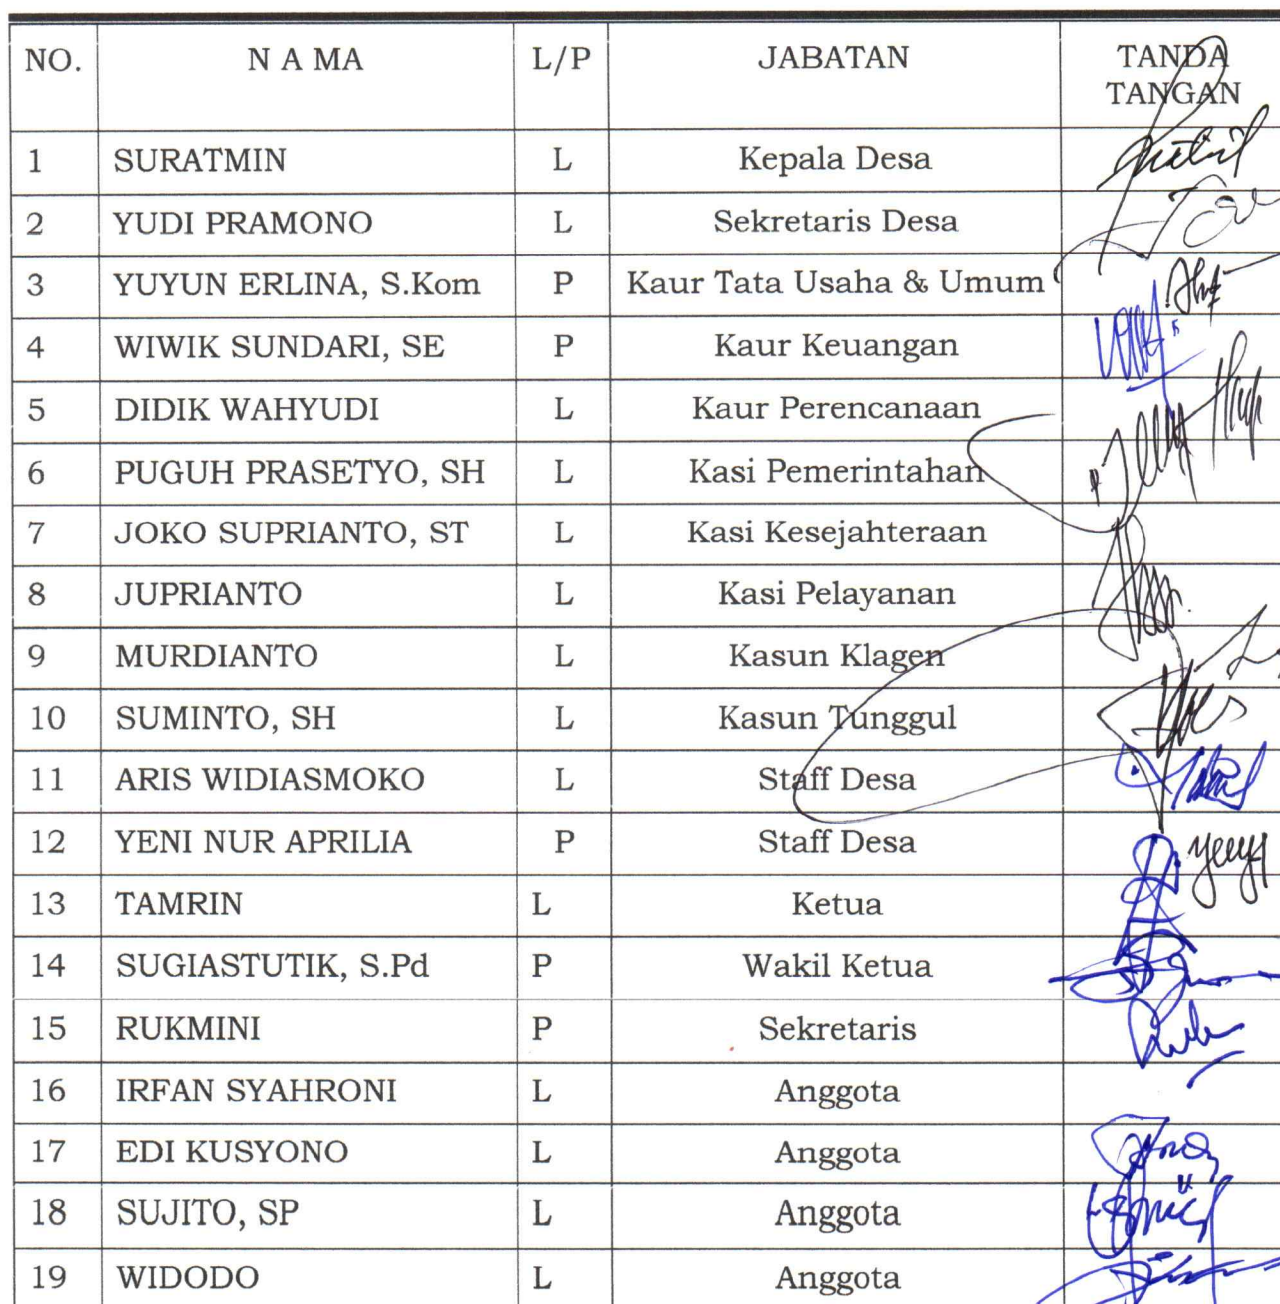 NO. N A MA L/P JABATAN TANDA TANGAN
1 SURATMIN L Kepala Desa
2 YUDI PRAMONO L Sekretaris Desa
3 YUYUN ERLINA, S.Kom P Kaur Tata Usaha & Umum
4 WIWIK SUNDARI, SE P Kaur Keuangan
5 DIDIK WAHYUDI L Kaur Perencanaan
6 PUGUH PRASETYO, SH L Kasi Pemerintahan
7 JOKO SUPRIANTO, ST L Kasi Kesejahteraan
8 JUPRIANTO L Kasi Pelayanan
9 MURDIANTO L Kasun Klagen
10 SUMINTO, SH L Kasun Tunggul
11 ARIS WIDIASMOKO L Staff Desa
12 YENI NUR APRILIA P Staff Desa
13 TAMRIN L Ketua
14 SUGIASTUTIK, S.Pd P Wakil Ketua
15 RUKMINI P Sekretaris
16 IRFAN SYAHRONI L Anggota
17 EDI KUSYONO L Anggota
18 SUJITO, SP L Anggota
19 WIDODO L Anggota